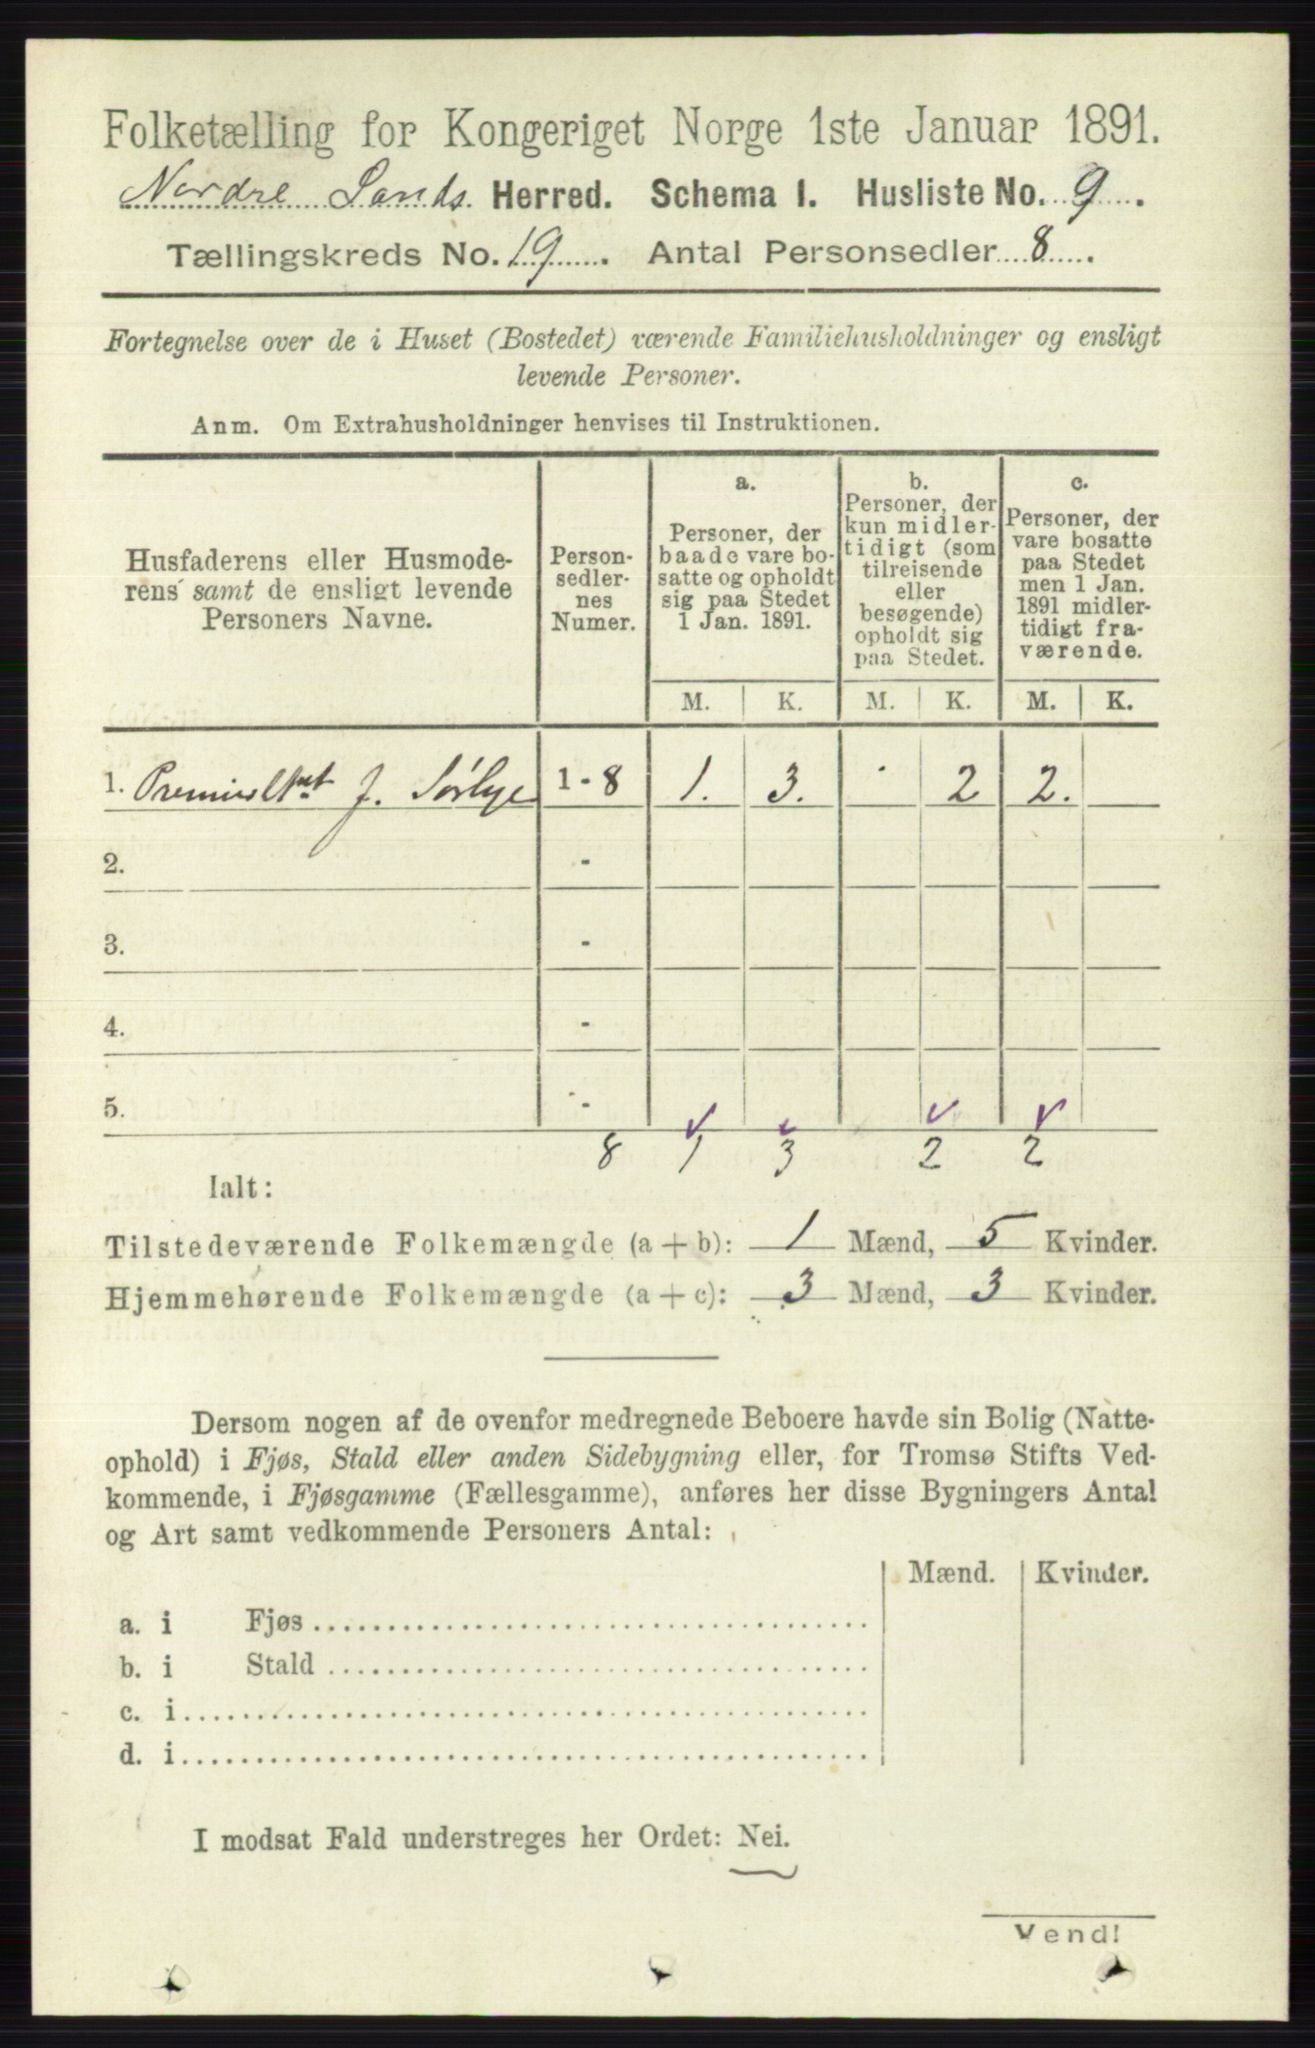 Folketælling for Kongeriget Norge 1ste Januar 1891.
Nordre Lands Herred. Schema I. Husliste No. 9.
Tællingskreds No. 19. Antal Personsedler 8.
Fortegnelse over de i Huset (Bostedet) værende Familiehusholdninger og ensligt
levende Personer.
Anm. Om Extrahusholdninger henvises til Instruktionen.
Husfaderens eller Husmode-
rens samt de ensligt levende
Personers Navne.
Person-
sedler-
nes
Numer.
a.
Personer, der
baade vare bo-
satte og opholdt
sig paa Stedet
1 Jan. 1891.
b.
Personer, der
kun midler-
tidigt (som
tilreisende
eller
besøgende)
opholdt sig
paa Stedet.
c.
Personer, der
vare bosatte
paa Stedet
men 1 Jan.
1891 midler-
tidigt fra-
værende.
M. K. M. K. M. K.
1. J. Sörlye 1 - 8 1. 3. 2 2.
2. -
3. -
4. -
5. -
8 1 3 2 2
Ialt:
Tilstedeværende Folkemængde (a + b): 1 Mænd, 5 Kvinder.
Hjemmehørende Folkemængde (a + c): 3 Mænd, 3 Kvinder.
Dersom nogen af de ovenfor medregnede Beboere havde sin Bolig (Natte-
ophold) i Fjøs, Stald eller anden Sidebygning eller, for Tromsø Stifts Ved-
kommende, i Fjøsgamme (Fællesgamme), anføres her disse Bygningers Antal
og Art samt vedkommende Personers Antal:
Mænd. Kvinder.
a. i Fjøs
b. i Stald
c. i
d. i
I modsat Fald understreges her Ordet: Nei.
Vend!